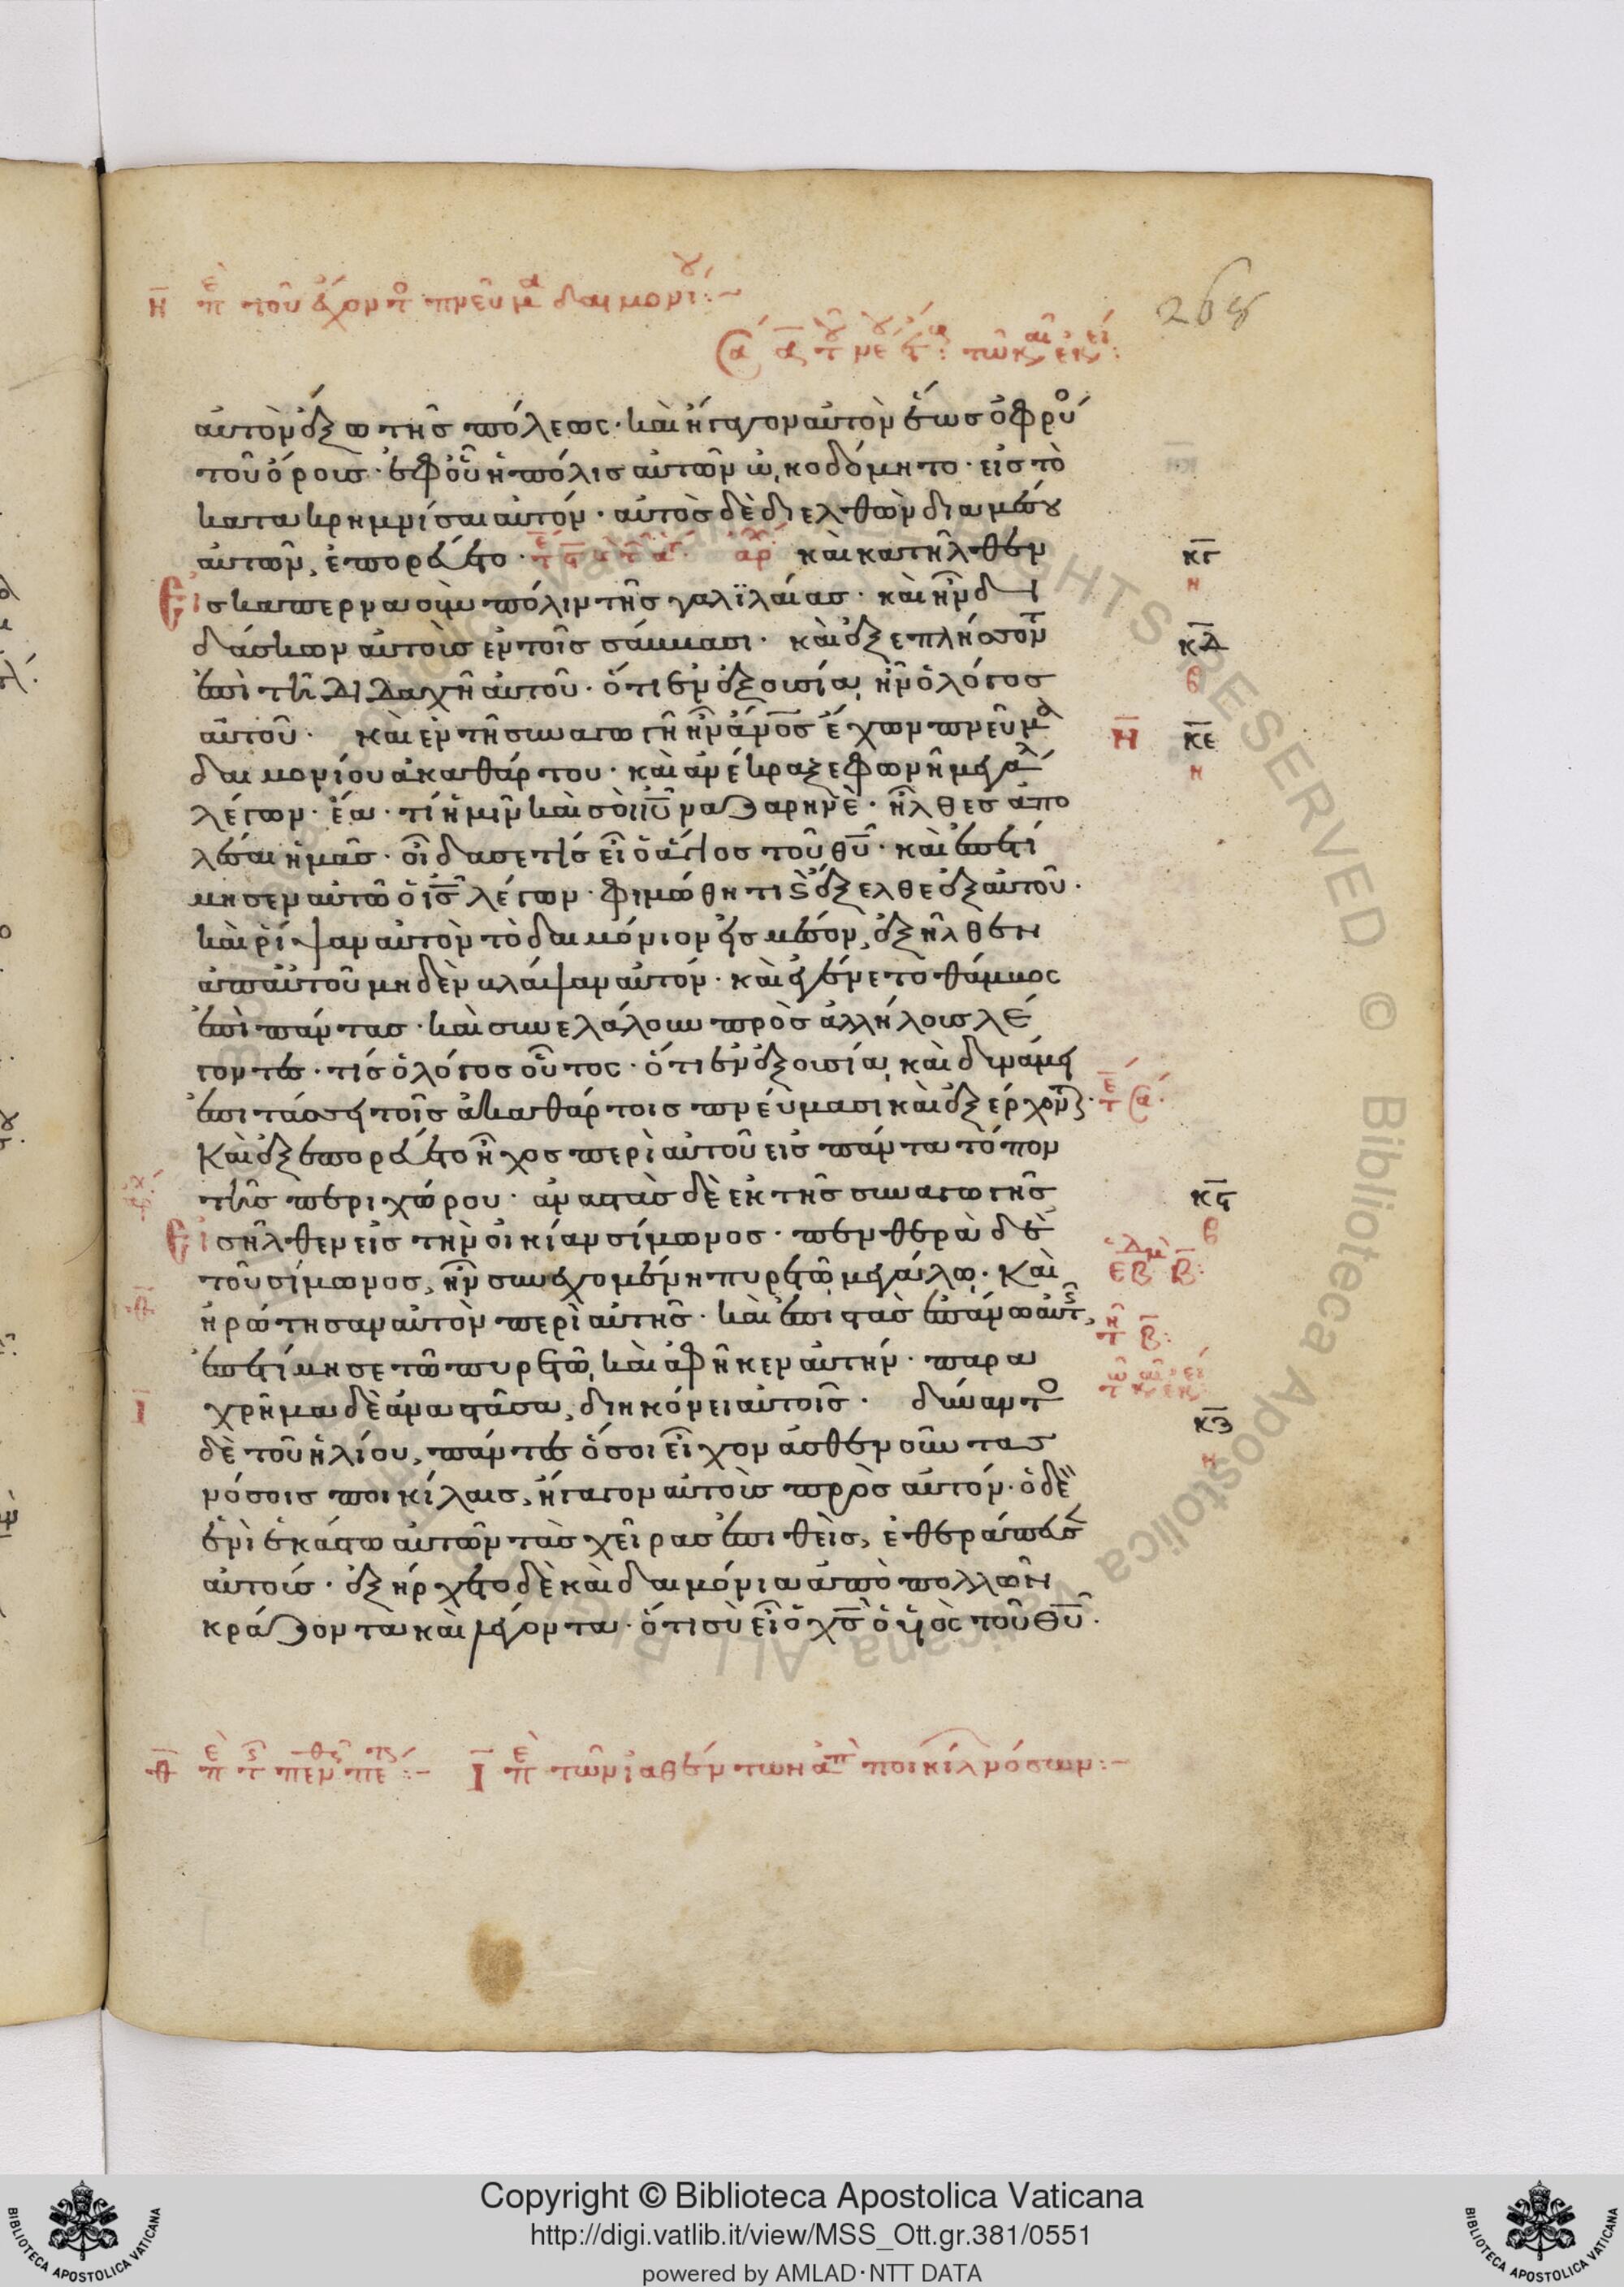 η̄ πε του ἔχοντο πνευμα δαιμονίου:~
268
αὐτὸν ἔξω τῆς πόλεως· καὶ ἤγαγον αὐτὸν ἕως ὀφρύο
τοῦ ὄρους· ἐφ' οὗ ἡ πόλις αὐτῶν ὠκοδόμητο· εἰς τὸ
κατακρημνίσαι αὐτόν· αὐτὸς δὲ διελθὼν δια μέσου
αὐτῶν, ἐπορεύετο· καὶ κατῆλθεν κγ
Εἰς καπερναοὺμ πόλιν τῆς γαλϊλαίας· καὶ ἦν δι η
δάσκων αὐτοὺς ἐν τοῖς σάββασι· καὶ ἐξεπλήσσοντ κδ
ἐπὶ τῇ διδαχῇ αὐτοῦ· ὅτι ἐν ἐξουσία ἦν ὁ λόγος θ
αὐτοῦ· καὶ ἐν τῇ συναγωγῇ ἦν ἄνος ἔχων πνεῦμα η̄ κε
δαιμονίου ἀκαθάρτου· καὶ ἀνέκραξε φωνῇ μεγάλ η
λέγων· ἔα· τί ἡμῖν καὶ σοὶ ιῦ ναζαρηνὲ· ἦλθες ἀπο
λέσαι ἡμᾶς· οἶδα σε τίς εἶ ὁ ἅγιος τοῦ θῦ· καὶ ἐπετί
μησεν αὐτῶ ὁ ις λέγων· φιμώθητι καὶ ἔξελθε ἐξ αὐτοῦ·
καὶ ρίψαν αὐτὸν τὸ δαιμόνιον εἰς μέσον, ἐξῆλθεν
ἀπ' αὐτοῦ μηδὲν βλάψαν αὐτόν· καὶ ἐγένετο θάμβος
ἐπὶ πάντας· καὶ συνελάλουν πρὸς ἀλλήλους λέ
γοντες· τίς ὁ λόγος οὗτος· ὅτι ἐν ἐξουσία καὶ δυνάμει
ἐπιτάσσει τοῖς ἀκαθάρτοις πνεύμασι καὶ ἐξέρχοντ·
Καὶ ἐξεπορεύετο ἦχος περὶ αὐτοῦ εἰς πάντα τόπον
τῆς περιχώρου· ἀναστὰς δὲ ἐκ τῆς συναγωγῆς κϛ
Εἰσῆλθεν εἰς τὴν οἰκίαν σίμωνος· πενθερὰ δὲ β
τοῦ σίμωνος, ἦν συνεχομένη πυρετῶ μεγάλω· Καὶ
ἠρώτησαν αὐτὸν περὶ αὐτῆς· καὶ ἐπιστὰς ἐπάνω αὐτ,
ἐπετίμησε τῶ πυρετῶ, καὶ ἀφῆκεν αὐτήν· παρα
χρῆμα δὲ ἀναστᾶσα, διηκόνει αὐτοῖς· δύναντο κζ
δὲ τοῦ ἡλίου, πάντες ὅσοι εἶχον ἀσθενοῦντας η
νόσοις ποικίλαις, ἤγαγον αὐτοὺς πρὸς αὐτόν· ὁ δὲ
ἑνὶ ἑκάστω αὐτῶν τὰς χεῖρας ἐπιθεὶς, ἐθεράπευσε
αὐτούς· ἐξήρχετο δὲ καὶ δαιμόνια ἀπὸ πολλῶν
κράζοντα καὶ λέγοντα· ὅτι σὺ εἶ ὁ χς ὁ υἱὸς τοῦ θῦ·
θ̄ πε τς πενθς πε:~ Ῑ πε τῶν ἰαθέντων ἀπ ποικίλ νόσων:~
Copyright © Biblioteca Apostolica Vaticana
http://digi.vatlib.it/view/MSS_Ott.gr.381/0551
powered by AMLAD·NTT DATA
BIBLIOTECA APOSTOLICA VATICANA
BIBLIOTECA APOSTOLICA VATICANA